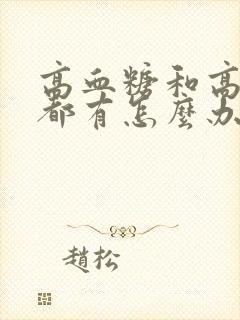 高血糖和高
都有怎麼办
趙松